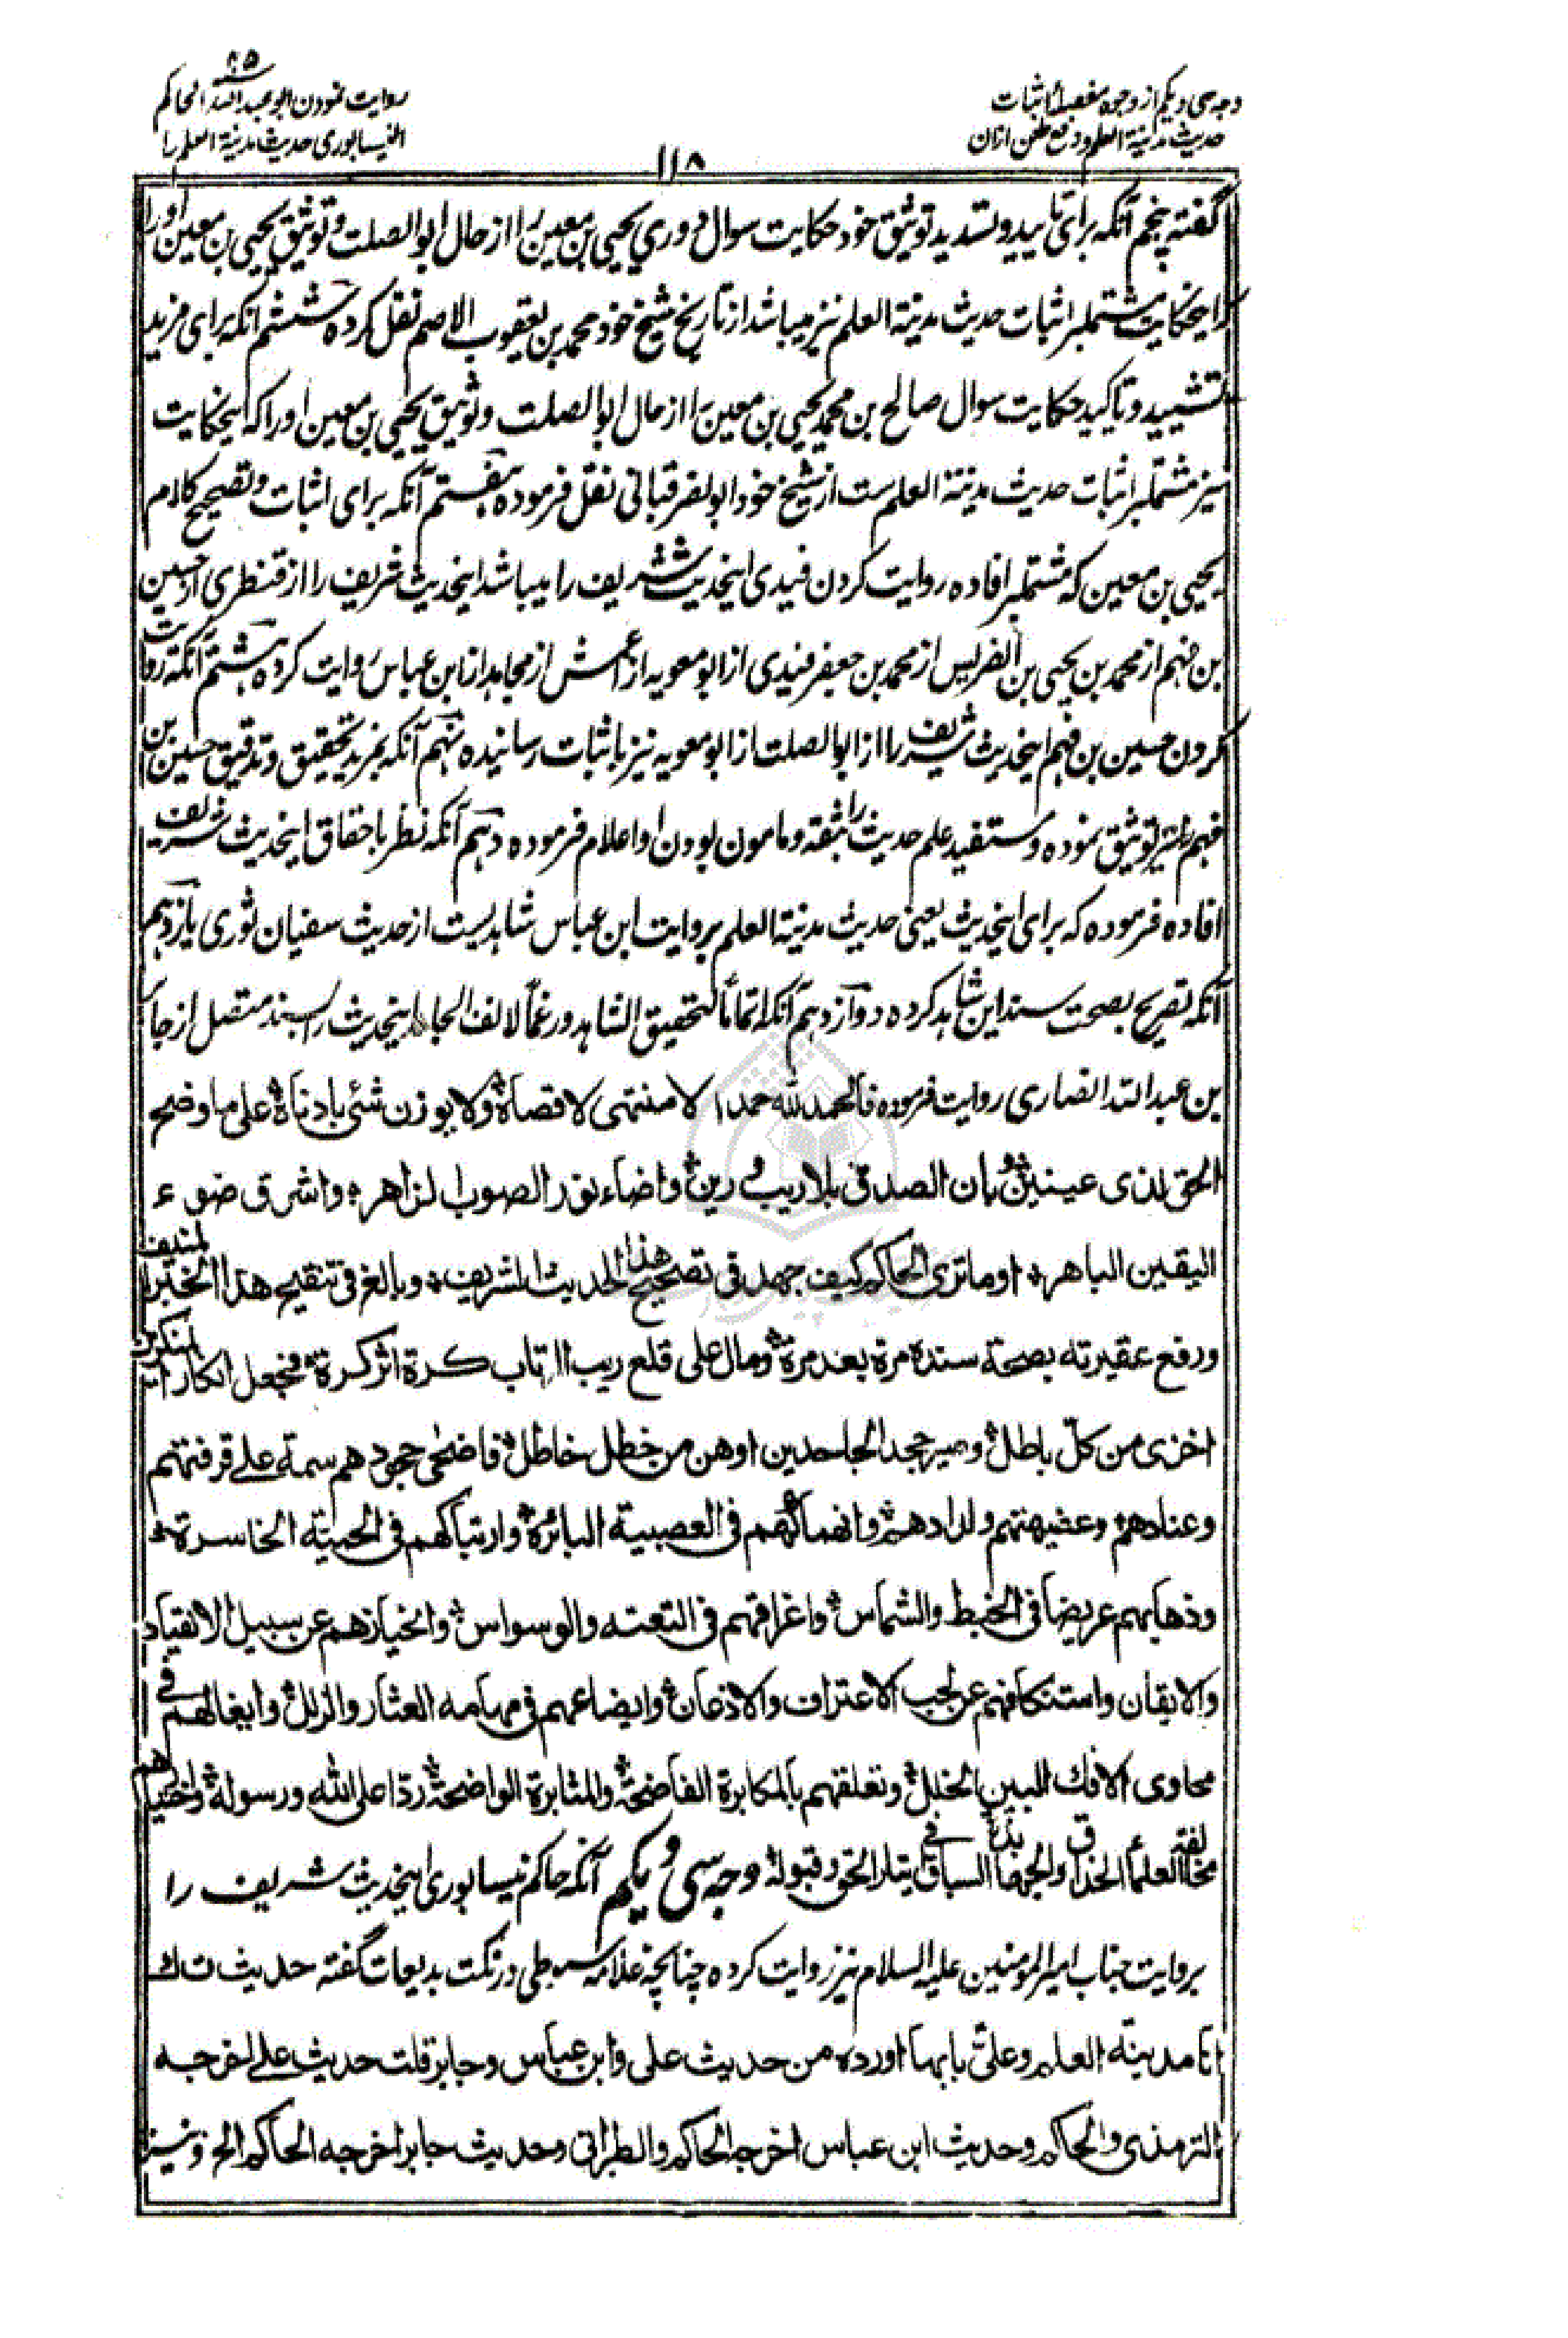 وجه سی و یکم از وجوه مفصله اثبات
حدیث مدینة العلم و دفع طعن ازان
۸۵
روایت نمودن ابو عبد الله الحاکم
النیسابوری حدیث مدینة العلم را
۱۱۸
گفته پنجم آنکه برای تایید و تسدید توثیق خود حکایت سوال دوری یحیی بن معین را از حال ابو الصلت و توثیق یحیی بن معین او را
که اینحکایت مشتملبر اثبات حدیث مدینة العلم نیز میباشد از تاریخ شیخ خود محمد بن یعقوب الاصم نقل کرده ششم آنکه برای مزید
تشیید و تاکید حکایت سوال صالح بن محمد یحیی بن معین را از حال ابو الصلت و توثیق یحیی بن معین او را که اینحکایت
نیز مشتملبر اثبات حدیث مدینة العلم ست از شیخ خود ابو نصر قبانی نقل فرموده هفتم آنکه برای اثبات و تصحیح کلام
یحیی بن معین که مشتملبر افاده روایت کردن فیدی اینحدیث شریف را میباشد اینحدیث شریف را از قنطری از حسین
بن فهم از محمد بن یحیی بن الضریس از محمد بن جعفر فیدی از ابو معویه از اعمش از مجاهد از ابن عباس روایت کرده هشتم آنکه روایت
کردن حسین بن فهم اینحدیث شریف را از ابو الصلت از ابو معویه نیز باثبات رسانیده نهم آنکه بمزید تحقیق و تدقیق حسین بن
فهم را نیز توثیق نموده و مستفید علم حدیث را بثقه و مامون بودن او اعلام فرموده دهم آنکه نظر باحقاق اینحدیث شریف
افاده فرموده که برای اینحدیث یعنی حدیث مدینة العلم بروایت ابن عباس شاهدیست از حدیث سفیان ثوری یازدهم
آنکه تصریح بصحت سند این شاهد کرده دوازدهم آنکه اتماما لتحقیق الشاهد و رغما لانف الجاحد اینحدیث را بسند متصل از جابر
بن عبد الله انصاری روایت فرموده فالحمد لله حمدا لا منتهی لاقصاه ولا یوزن شئ بادناه علی ما وضح
الحق لذی عینین وبان الصدق بلا ریب ورین واضاء نور الصواب الزاهر واشرق ضوء
الیقین الباهر اوما تری الحاکم کیف جهد فی تصحیح هذا الحدیث الشریف وبالغ فی تنقیح هذا الخبر المنیف
ورفع عقیرته بصحة سنده مرة بعد مرة ومال علی قلع ریب المرتاب کرة اثر کرة فجعل انکار المنکرین
اخزی من کل باطل وصیر جحد الجاحدین اوهن من خطل خاطل فاضحی جحودهم سمة علی قرفتهم
وعنادهم وعضیهتهم ولدادهم وانهماکهم فی العصبیة البائرة وارتباکهم فی الحمیة الخاسرة
وذهابهم عریضا فی الخبط والشماس واغراقهم فی التعته والوسواس وانحیازهم عن سبیل الانقیاد
والایقان واستنکافهم عن لحب الاعتراف والاذعان وایضاعهم فی مهامه العثار والزلل وایغالهم فی
محاوی الافک المبین الخبل وتعلقهم بالمکابرة الفاضحة والمثابرة الواضحة ردا علی الله ورسوله واختیارهم
مخالفة العلماء الحذاق والجهابذة السباق فی ایثار الحق وقبوله وجه سی و یکم آنکه حاکم نیسابوری اینحدیث شریف را
بروایت جناب امیر المومنین علیه السلام نیز روایت کرده چنانچه علامه سیوطی در نکت بدیعات گفته حدیث ت ک
انا مدینة العلم وعلی بابها اورده من حدیث علی وابن عباس وجابر قلت حدیث علی اخرجه
الترمذی والحاکم وحدیث ابن عباس اخرجه الحاکم والطبرانی وحدیث جابر اخرجه الحاکم الخ و نیز